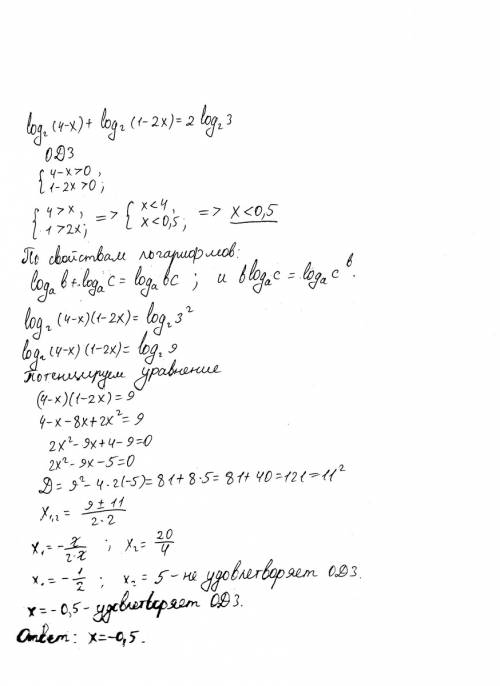 log₂(4-x)+ log₂(1-2x)=2 log₂3
ОДЗ
{4-x>0,
1-2x>0;
{4>x, 1>2x; => {x<4, x<0,5; => x<0,5
По свойствам логарифмов:
logₐb+logₐc=logₐbc ; и blogₐc=logₐcᵇ.
log₂(4-x)(1-2x)=log₂3²
log₂(4-x)(1-2x)=log₂9
Потенциируем уравнение
(4-x)(1-2x)=9
4-x-8x+2x²=9
2x²-9x+4-9=0
2x²-9x-5=0
D=9²-4·2(-5)=81+8·5=81+40=121=11²
x₁,₂= (9±11)/(2·2)
x₁=-2/(2·2) ; x₂=20/4
x₁=-1/2 ; x₂=5-не удовлетворяет ОДЗ.
x=-0,5-удовлетворяет ОДЗ.
Ответ: x=-0,5.